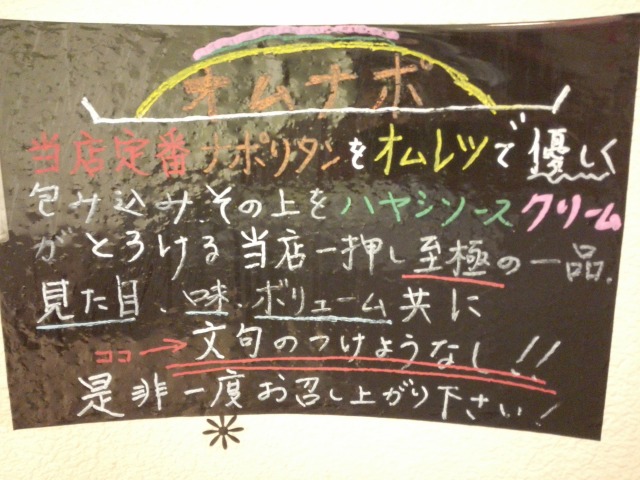 オムナポ
当店定番ナポリタンをオムレツで優しく
包み込みその上をハヤシソースクリーム
がとろける当店一押し至極の一品.
見た目、味、ボリューム共に
ココ→文句のつけようなし!!
是非一度お召し上がり下さい!